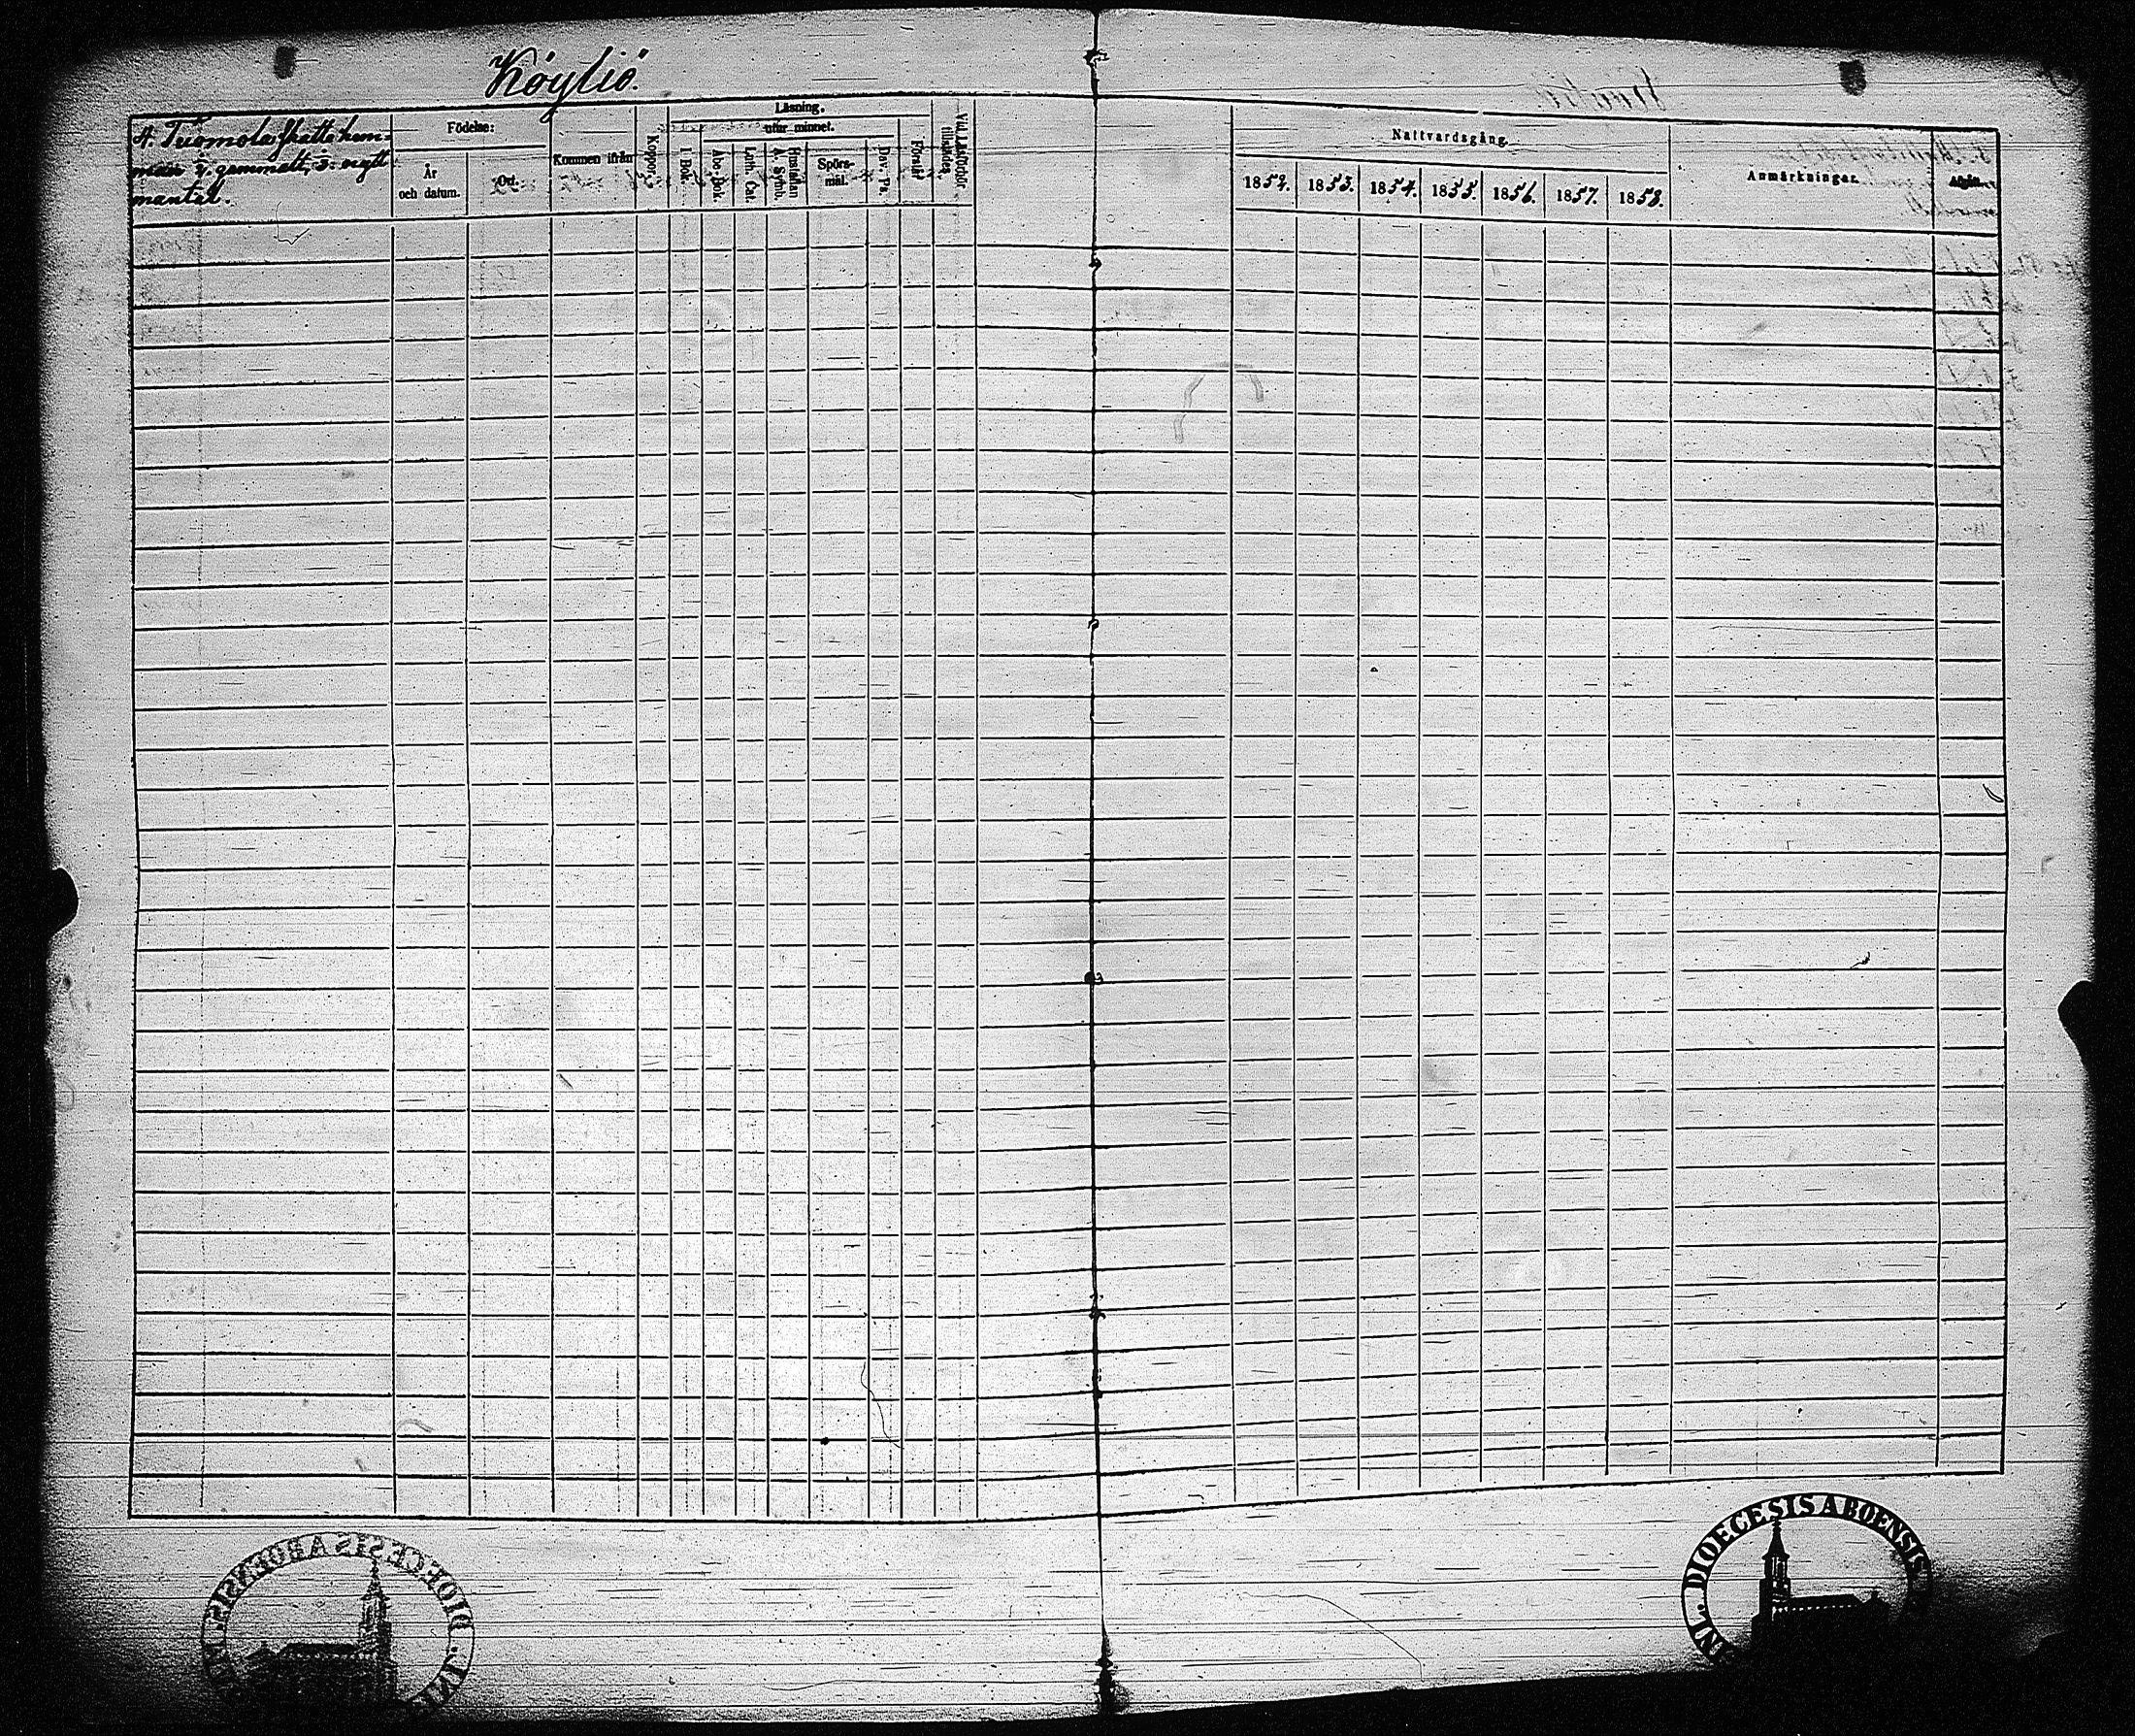 Köyliö.
4. Tuomola Skatte hem-
man gammalt, nytt
mantal.
Födelse:
År
och datum.
Ort.
Kommen ifrån
Koppor.
Läsning.
utur minnet.
I Bok.
Abc-bok.
Luth. Cat.
Hustaflan
A. Symb.
Spörs-
mål.
Dav. Ps.
Förstår
Vid Läsförhör
tillstädes.
Nattvardsgång.
1852. 1853. 1854. 1855. 1856. 1857. 1858.
Anmärkningar.
Afgått.
DIOECESIS ABOENSIS